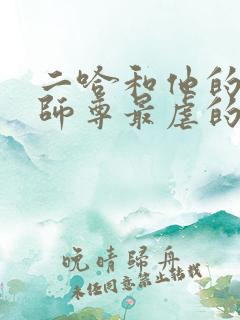 二哈和他的
師尊最虐的
晚晴歸舟
未经同意禁止转载